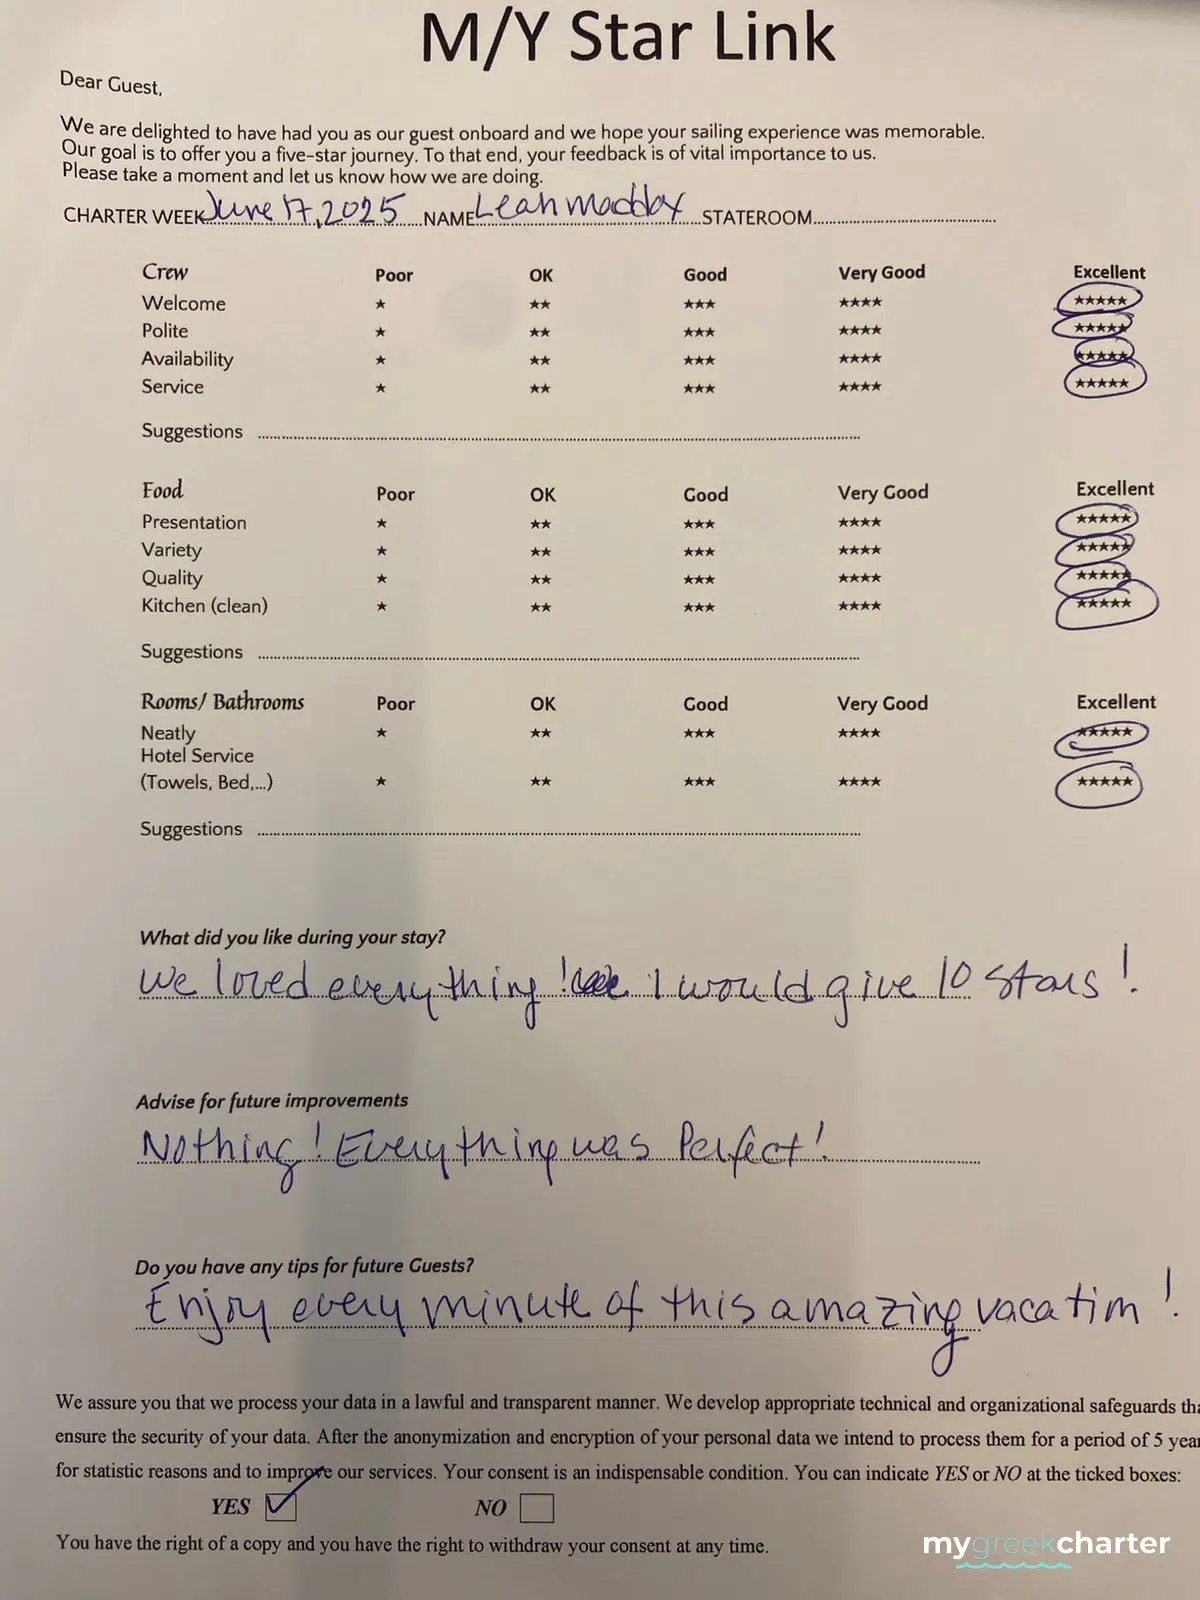 M/Y Star Link
Dear Guest,
We are delighted to have had you as our guest onboard and we hope your sailing experience was memorable.
Our goal is to offer you a five-star journey. To that end, your feedback is of vital importance to us.
Please take a moment and let us know how we are doing.
CHARTER WEEK June 17, 2025 NAME Leah Maddox STATEROOM
Crew Poor OK Good Very Good Excellent
Welcome ★ ★★ ★★★ ★★★★ ★★★★★
Polite ★ ★★ ★★★ ★★★★ ★★★★★
Availability ★ ★★ ★★★ ★★★★ ★★★★★
Service ★ ★★ ★★★ ★★★★ ★★★★★
Suggestions
Food Poor OK Good Very Good Excellent
Presentation ★ ★★ ★★★ ★★★★ ★★★★★
Variety ★ ★★ ★★★ ★★★★ ★★★★★
Quality ★ ★★ ★★★ ★★★★ ★★★★★
Kitchen (clean) ★ ★★ ★★★ ★★★★ ★★★★★
Suggestions
Rooms/ Bathrooms Poor OK Good Very Good Excellent
Neatly ★ ★★ ★★★ ★★★★ ★★★★★
Hotel Service
(Towels, Bed,...) ★ ★★ ★★★ ★★★★ ★★★★★
Suggestions
What did you like during your stay?
We loved everything! I would give 10 stars!
Advise for future improvements
Nothing! Everything was Perfect!
Do you have any tips for future Guests?
Enjoy every minute of this amazing vacation!
We assure you that we process your data in a lawful and transparent manner. We develop appropriate technical and organizational safeguards
ensure the security of your data. After the anonymization and encryption of your personal data we intend to process them for a period of 5
for statistic reasons and to improve our services. Your consent is an indispensable condition. You can indicate YES or NO at the ticked boxes:
YES NO
You have the right of a copy and you have the right to withdraw your consent at any time.
mygreekcharter